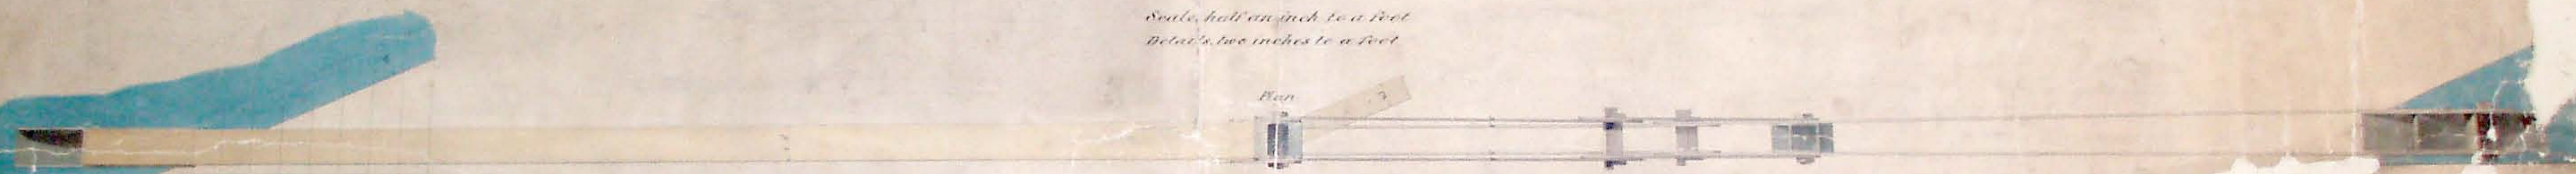 Scale, half an inch to a foot
Details, two inches to a foot
Plan